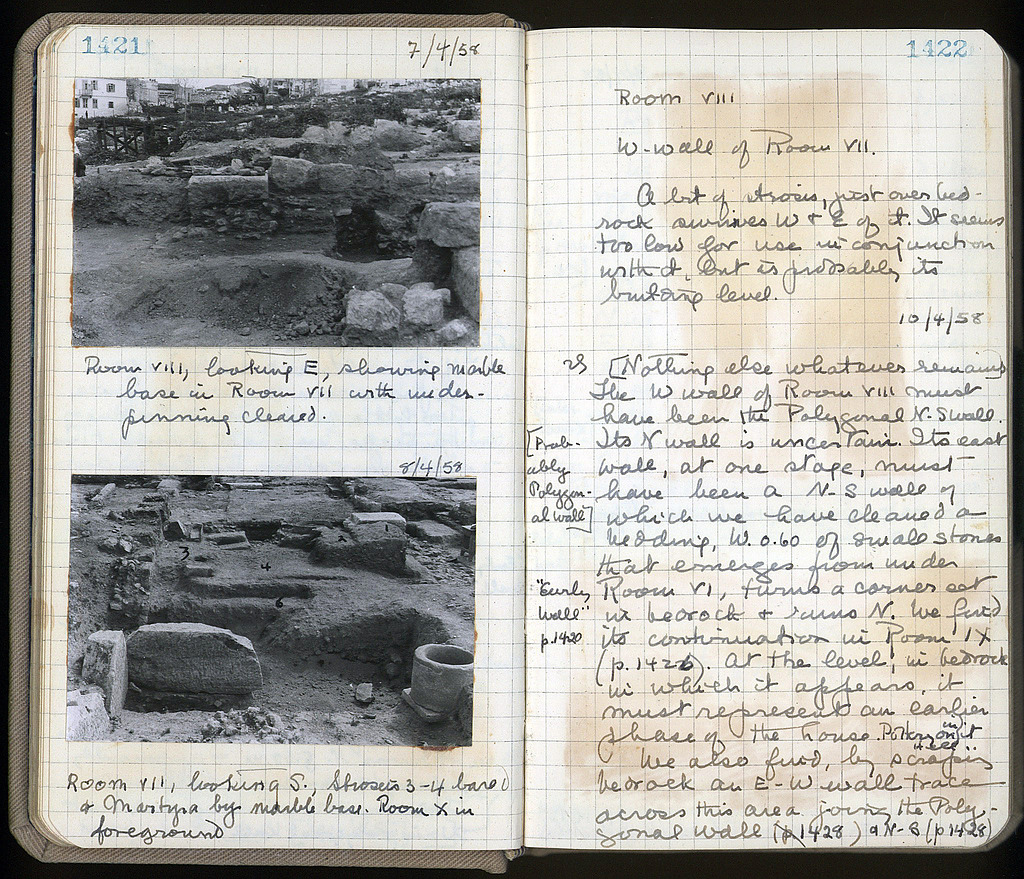 1421
7/4/58
Room VIII, looking E, showing marble
base in Room VII with under-
pinning cleared.
8/4/58
1
2
3
4
Room VII, looking S., Strosis 3-4 bared
& Martyra by marble base. Room X in
foreground
1422
Room VIII
W-wall of Room VII.
A bit of strosis, just over bed-
rock survives W & E of it. It seems
too low for use in conjunction
with it, but is probably its
building level.
10/4/58
[Nothing else whatever remains
The W wall of Room VIII must
have been the Polygonal N-S wall.
Its N wall is uncertain. Its east
wall, at one stage, must
have been a N-S wall of
which we have cleared a
bedding, W. 0.60 of small stones
that emerges from under
Room VI, turns a corner cut
in bedrock & runs N. We find
its continuation in Room IX
(p. 1426). At the level, in bedrock
in which it appears, it
must represent an earlier
phase of the house. Pottery in it
We also find, by scraping
bedrock an E-W wall trace
across this area joining the Poly-
gonal wall (p. 1428) & N-S (p 1428)
[Prob-
ably
Polygon-
al wall]
"Early
Wall"
p. 1420